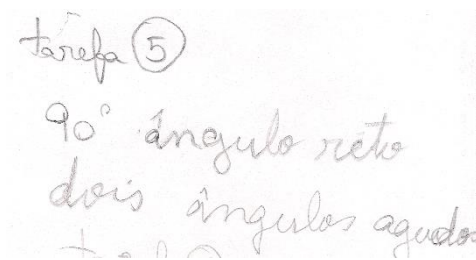 tarefa 5
90° ângulo reto
dois ângulos agudos